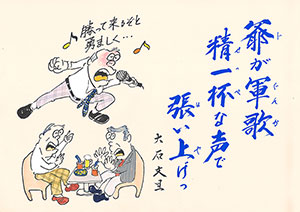 爺が軍歌
精一杯な声で
張い上げっ
大石文旦
勝って来るぞと
勇ましく…